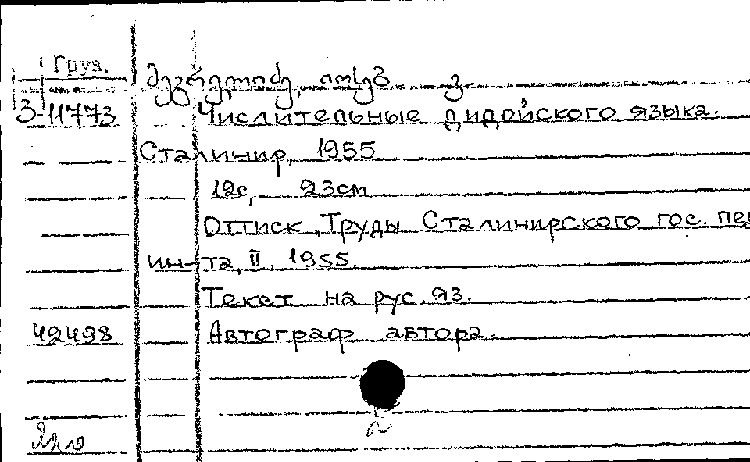 Груз.
მეგრელიძე, იოსებ
З-11773
Числительные дидойского языка.
Сталинир, 1955
12с, 23см
Оттиск, Труды Сталинирского гос. пед
ин-та, II, 1955
Текст на рус. яз.
42498 Автограф автора.